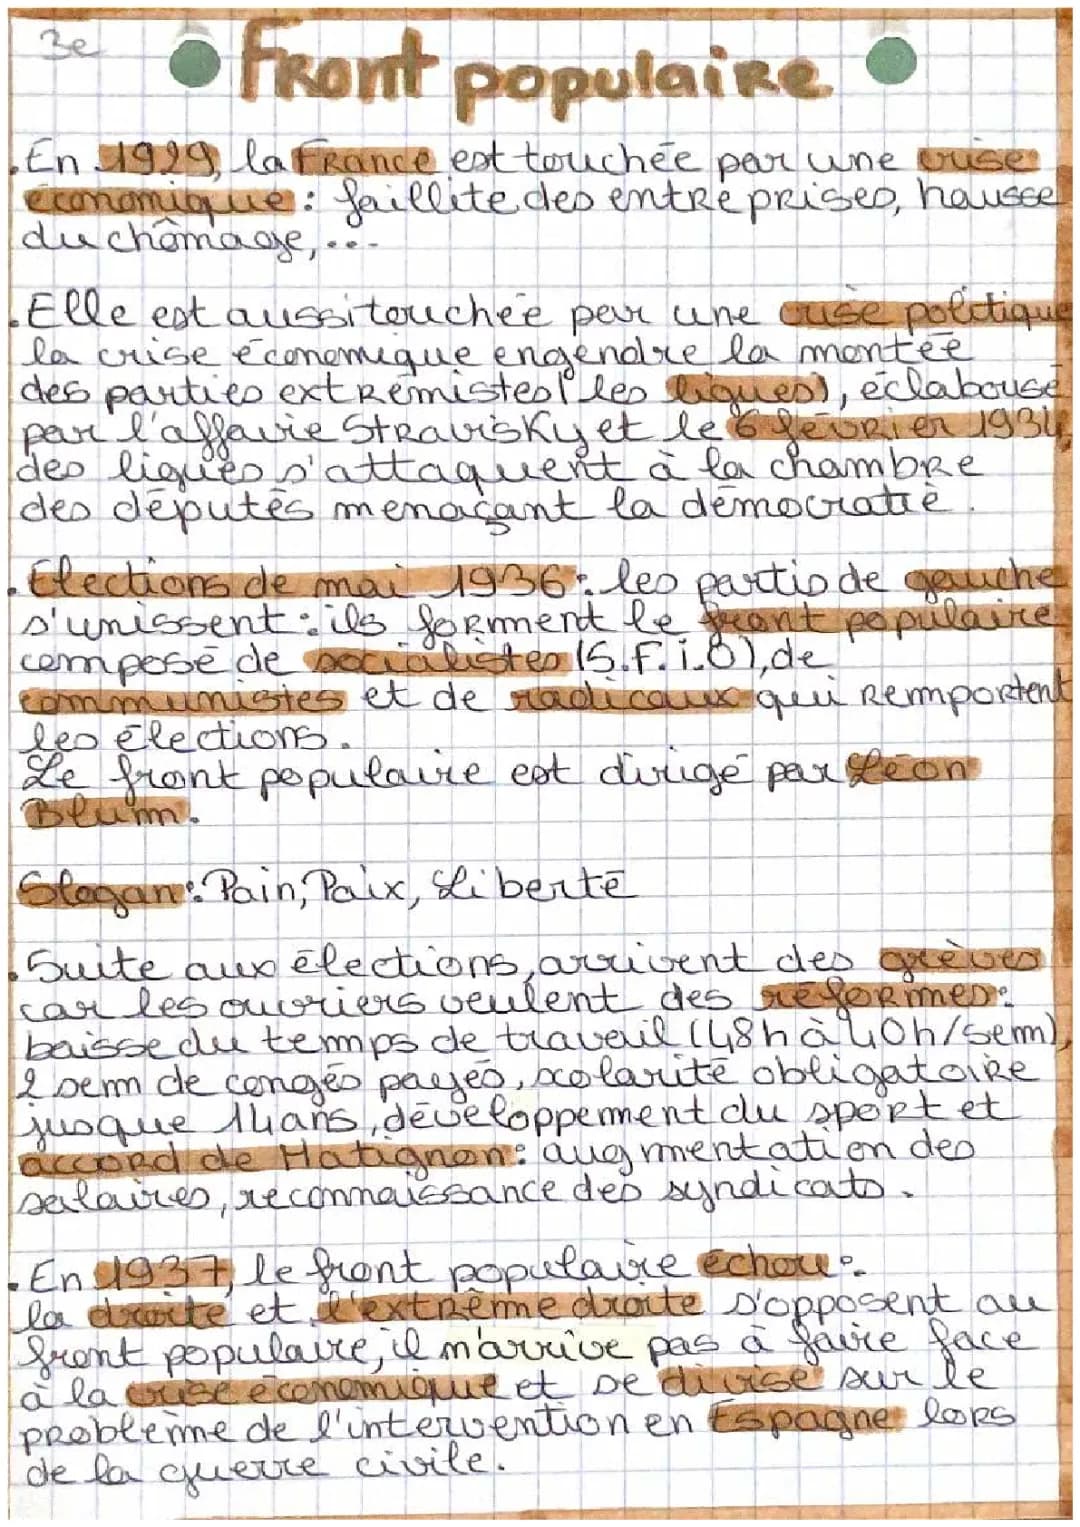 3e
Front populaire
.En 1929, la France est touchée par une crise
économique : faillite des entreprises, hausse
du chômage,...
.Elle est aussi touchée par une crise politique
la crise économique engendre la montée
des parties extrémistes (les ligues), éclabousé
par l'affaire Stravisky et le 6 février 1934,
des ligues s'attaquent à la chambre
des députés menaçant la démocratie.
.Elections de mai 1936 : les partis de gauche
s'unissent : ils forment le front populaire
composé de socialistes (S.F.i.O), de
communistes et de radicaux qui remportent
les élections.
Le front populaire est dirigé par Léon
Blum.
Slogan : Pain, Paix, Liberté
.Suite aux élections, arrivent des grèves
car les ouvriers veulent des réformes :
baisse du temps de travail (48h à 40h/sem),
2 sem de congés payés, scolarité obligatoire
jusque 14ans, développement du sport et
accord de Matignon : augmentation des
salaires, reconnaissance des syndicats.
.En 1937, le front populaire échou :
la droite et l'extrême droite s'opposent au
front populaire, il n'arrive pas à faire face
à la crise économique et se divise sur le
problème de l'intervention en Espagne lors
de la guerre civile.